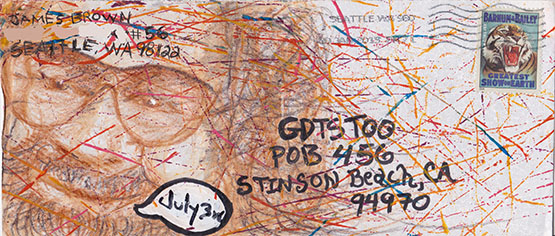 JAMES BROWN
#56
SEATTLE, WA 98122
SEATTLE WA 980
BARNUM & BAILEY
GREATEST
SHOW ON EARTH
GDTSTOO
POB 456
STINSON Beach, CA
94970
July 3rd